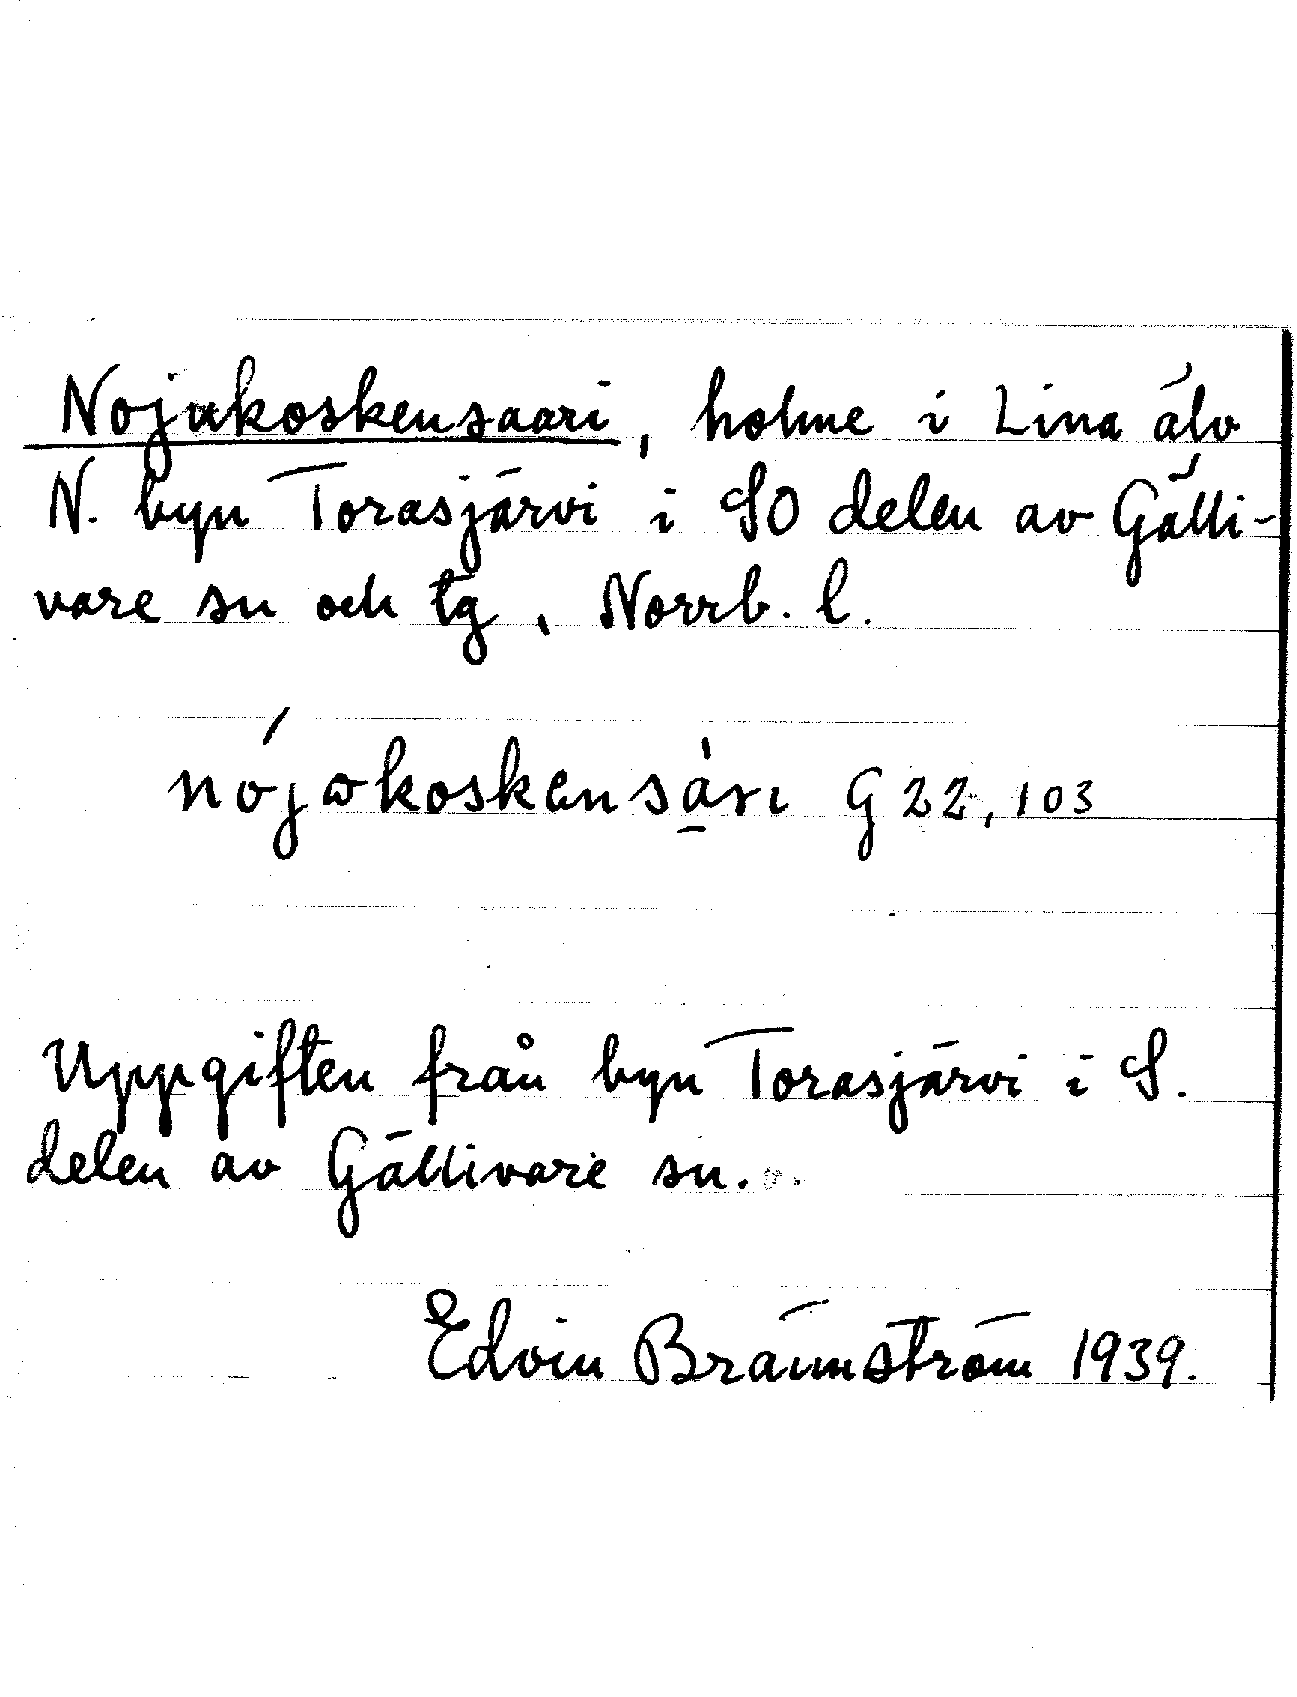 Nojukoskensaari, holme i Lina älv
N. byn Torasjärvi i SO delen av Gälli-
vare sn och tg, Norrb. l.
nójωkoskensà̱ri G 22, 103
Uppgiften från byn Torasjärvi i S.
delen av Gällivare sn.
Edvin Brännström 1939.